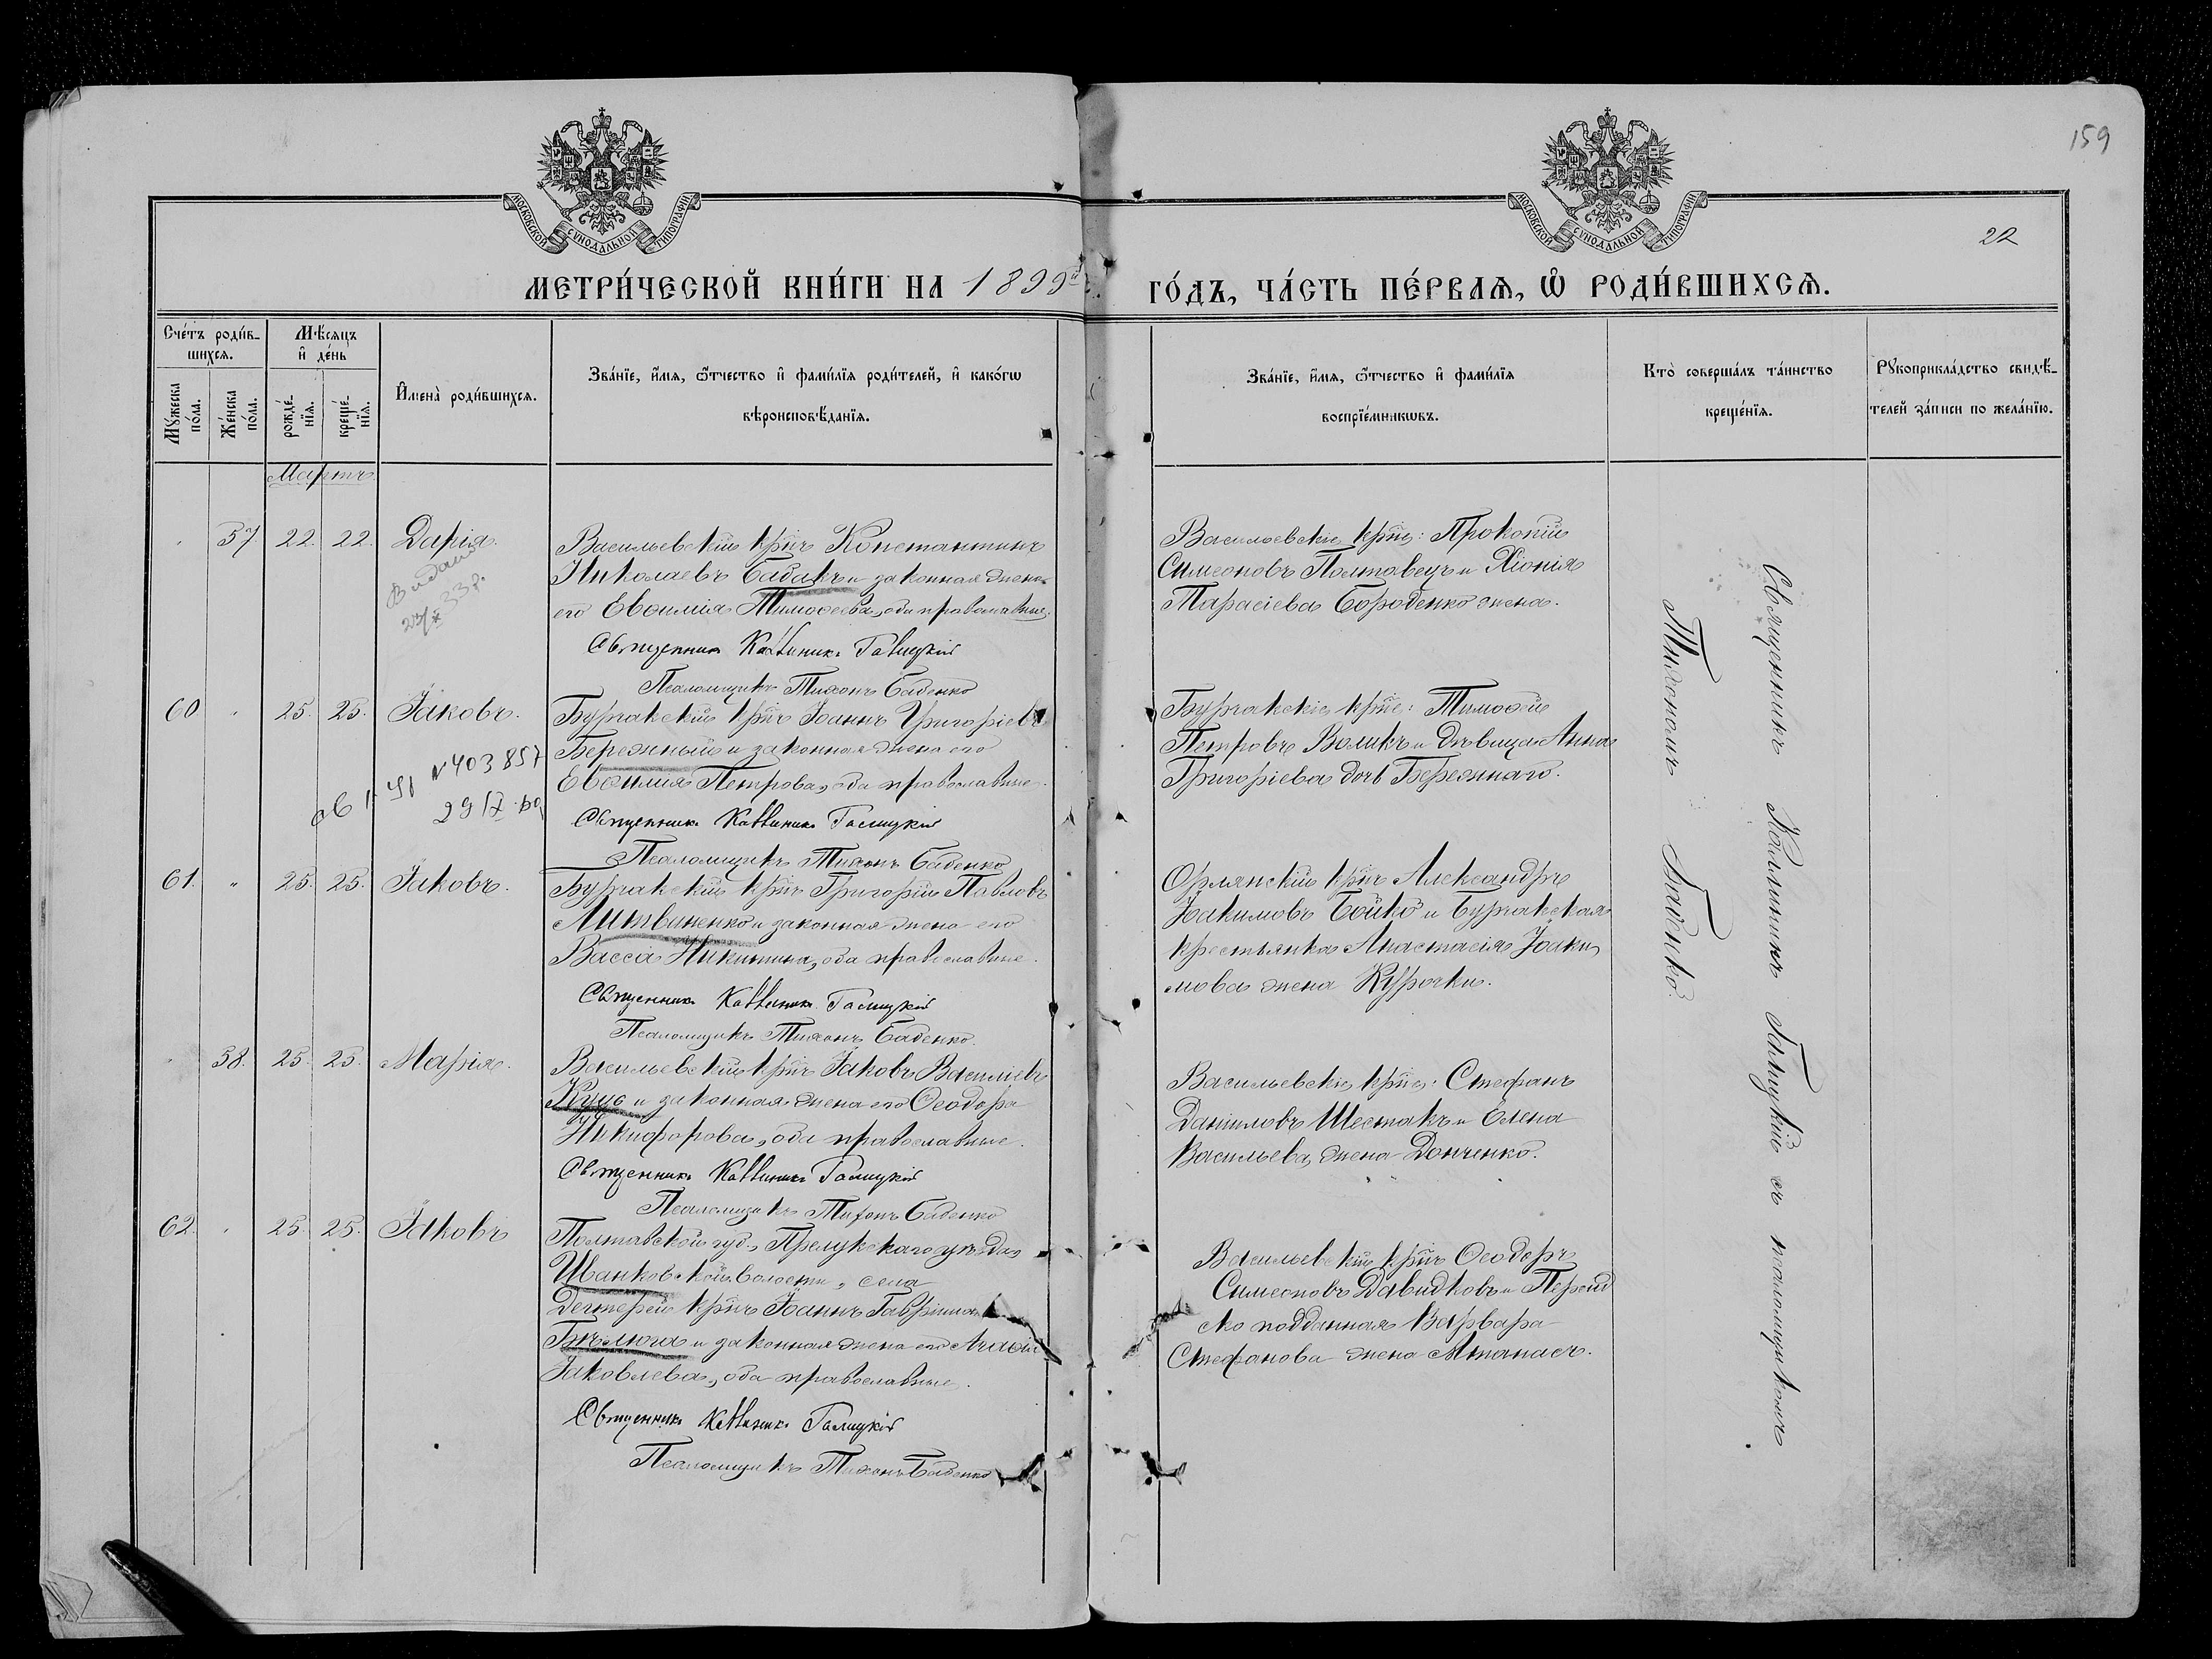 159
МОСКОВСКОЙ СѴНОДАЛЬНОЙ ТИПОГРАФІИ
МОСКОВСКОЙ СѴНОДАЛЬНОЙ ТИПОГРАФІИ
22
МЕТРИ́ЧЕСКОЙ КНИ́ГИ НА 1899й
ГО́ДЪ, ЧА́СТЬ ПЕ́РВАѦ, Ѡ҆ РОДИ́ВШИХСѦ.
Сче́тъ роди́в-
шихсѧ.
Му́жеска по́ла.
Же́нска по́ла.
Мѣ́сѧцъ
и҆ де́нь
рожде́-нїѧ.
креще́-нїѧ.
И҆мена̀ роди́вшихсѧ.
Зва́нїе, и҆́мѧ, ѻ҆́тчество и҆ фами́лїѧ роди́телей, и҆ како́гѡ
вѣроисповѣ́данїѧ.
Зва́нїе, и҆́мѧ, ѻ҆́тчество и҆ фами́лїѧ
воспрїе́мникѡвъ.
Кто̀ соверша́лъ та́инство
креще́нїѧ.
Рꙋкоприкла́дство свидѣ́-
телей за́писи по жела́нїю.
Мартъ
37 22. 22. Дарія.
Васильевскій кр̃нъ Константинъ
Николаевъ Бабакъ и законная жена
его Евѳимія Тимоѳеева, оба православные.
Священникъ Каллиникъ Галицкій
Псаломщикъ Тихонъ Баденко
Васильевскіе кр̃не: Прокопій
Симеоновъ Полтавецъ и Хіонія
Тарасіева Бороденко жена.
Выдано
33 г.
60 " 25. 25. Іаковъ.
Бурчакскій кр̃нъ Іоаннъ Григоріевъ
Бережный и законная жена его
Евѳимія Петрова, оба православные.
Священникъ Каллиникъ Галицкій
Псаломщикъ Тихонъ Баденко
Бурчакскіе кр̃не: Тимоѳей
Петровъ Воликъ и дѣвица Анна
Григоріева дочь Бережнаго.
N 403857
61. " 25. 25. Іаковъ.
Бурчакскій кр̃нъ Григорій Павловъ
Литвиненко и законная жена его
Васса Никитина, оба православные.
Священникъ Каллиникъ Галицкій
Псаломщикъ Тихонъ Баденко.
Орлянскій кр̃нъ Александръ
Іоакимовъ Бойко и Бурчакская
крестьянка Анастасія Іоаки
мова жена Курочки.
38. 25. 25. Марія.
Васильевскій кр̃нъ Іаковъ Василіевъ
Куць и законная жена его Ѳеодора
Никифорова, оба православные.
Священникъ Каллиникъ Галицкій
Псаломщикъ Тихонъ Баденко
Васильевскіе кр̃не: Стефанъ
Даніиловъ Шестакъ и Елена
Васильева, жена Донченко.
62. 25. 25. Іаковъ
Полтавской губ., Прелукскаго уѣзда,
Иванковской волости, села
Дегтерей кр̃нъ Іоаннъ Гавріилов
Бѣлюга и законная жена его Агаѳія
Іаковлева, оба православные.
Священникъ Каллиникъ Галицкій
Псаломщикъ Тихонъ Баденко
Васильевскій кр̃нъ Ѳеодоръ
Симеоновъ Давидковъ и Персид
ско подданная Варвара
Стефанова жена Атанасъ.
Священникъ Каллиникъ Галицкій съ псаломщикомъ
Тихономъ Баденко.